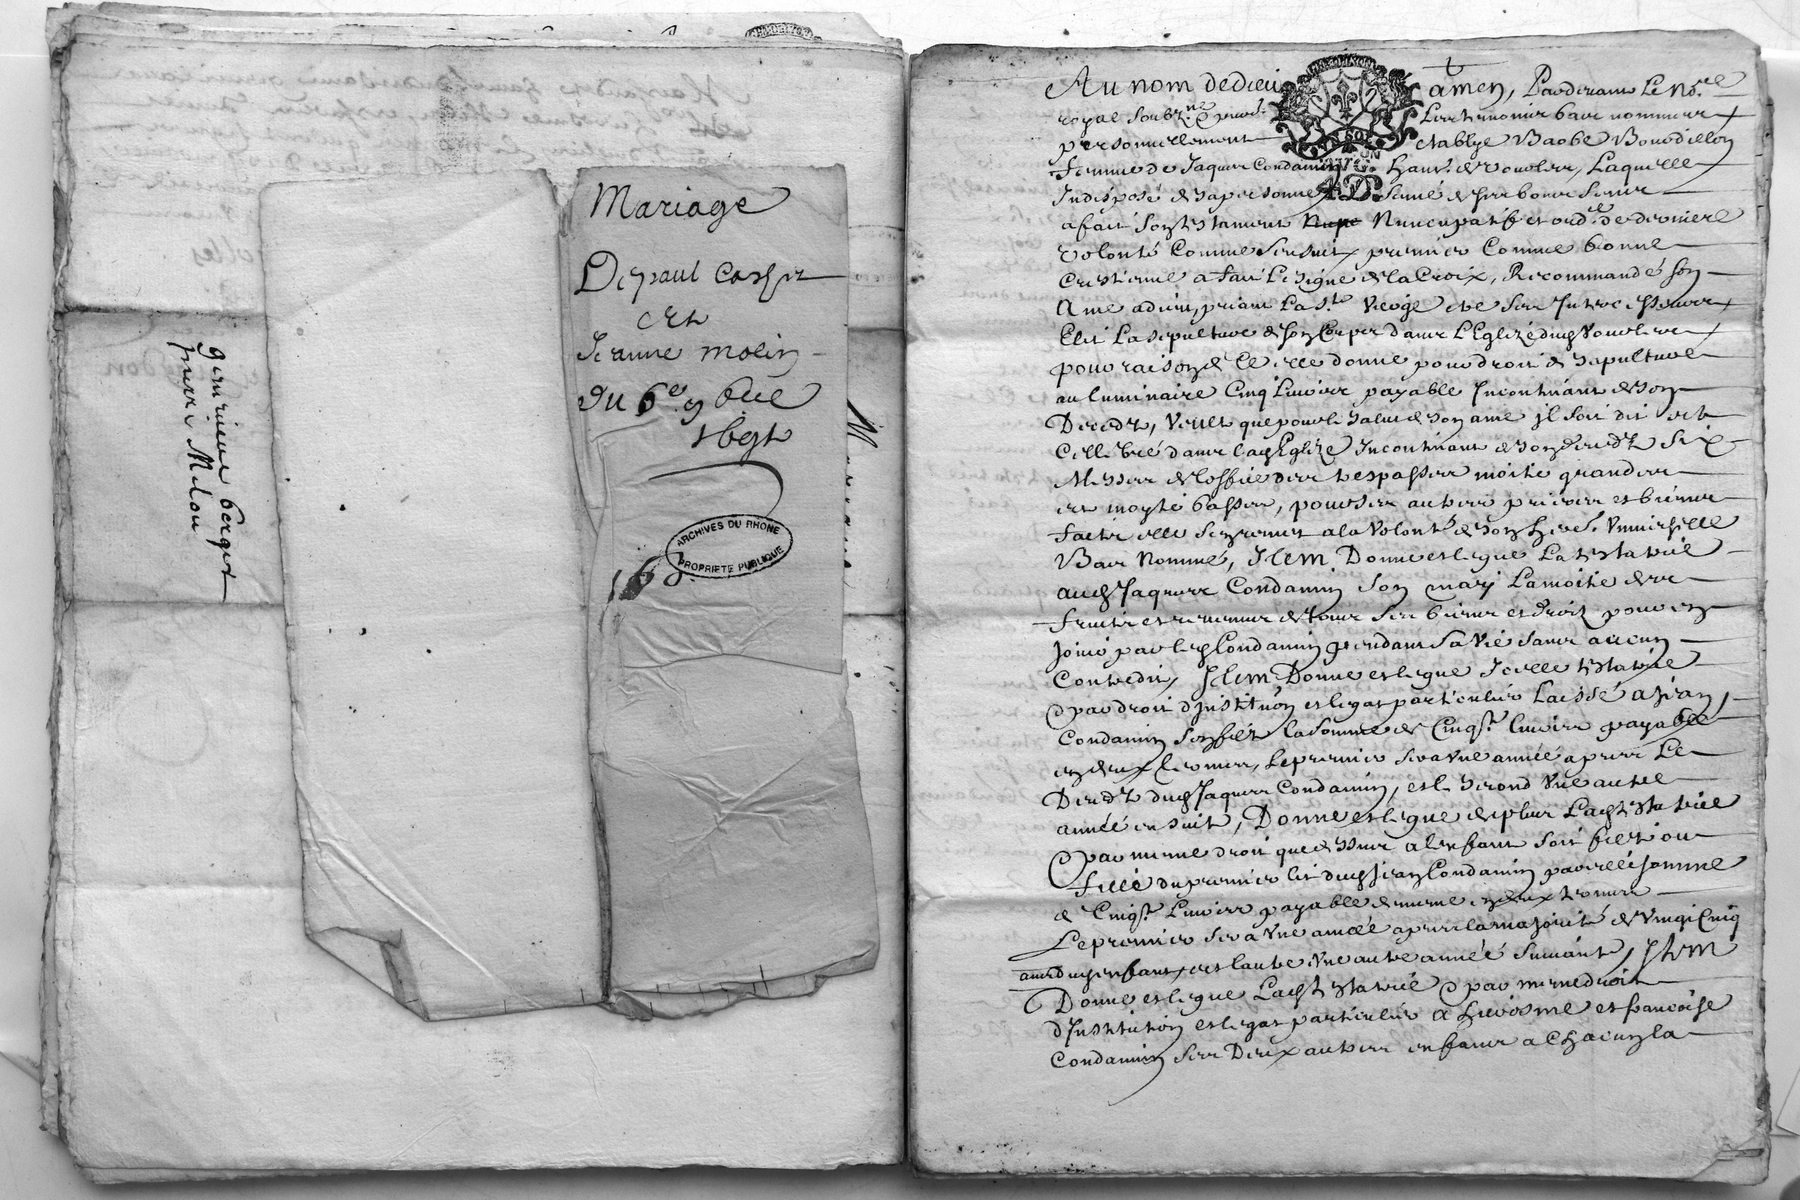 Mariage
Depaul Cosset
Et
Jeanne molin
Du 6e 9bre
ARCHIVES DU RHONE
PROPRIETE PUBLIQUE
pierre Milou
Au nom de dieu amen, Pardevant Le no.re
royal soubz.ne Les tesmoins bas nommes
personnellement establye Barbe Bourdillon
femme de Jaques Condamin hant. de Voules, Laquelle
Indisposé de sa personne Sainé de ses bons sens
a fait son testament Nupe Nuncupatif et ord.e de derniere
Volonté Comme sensuit, premier Comme bonne
Crestienne a fait Le signe de la Croix, Recommandé son
Ame a dieu, priant La S.te Vierge etre son Intercesseure
Elit La sepulture de son Corps dans L'Eglize dud Voules
pour raison de ce elle donne pour droit de sepulture
au luminaire Cinq Livres payable Incontinant de son
Decedz, Veult que pour le salut de son ame Il soit dit et
Cellebré dans lad Eglize Incontinant de son decedz six
Messes de l'office des trespasses moitié grandes
et moytié basses, pour ses autres prieres et biens
faits elle s'en remet a la Volonté de son her. Universelle
Bas Nommé, Item Donne et legue La testatrice
aud Jaques Condamin son mary La moitié des
fruits et revenus de tous ses biens et droits pour en
Jouir par led Condamin pendant sa Vie sans aucun
Contredit, Item Donne et legue Icelle testatrice
par droit d'Institution et legat particulier Laissé a Jean
Condamin son filz la somme de Cinq.te livres payable
en deux termes, Le premier sera Une année apres Le
Decedz dud Jaques Condamin, et le second Une autre
année en suite, Donne et legue de plus Lad testatrice
par mesme droit que dessus a l'enfant soit filz ou
fille du premier lit dud Jean Condamin pareille somme
de Cinq.te Livres payable de mesme en deux termes
Le premier sera Une année apres la majorité de Vingt Cinq
ans dud enfant, et l'autre Une autre année suivant, Item
Donne et legue Lad testatrice par mesme droit
d'Institution et legat particulier a Hierosme et françoise
Condamin ses Deux autres enfans a Chacun la